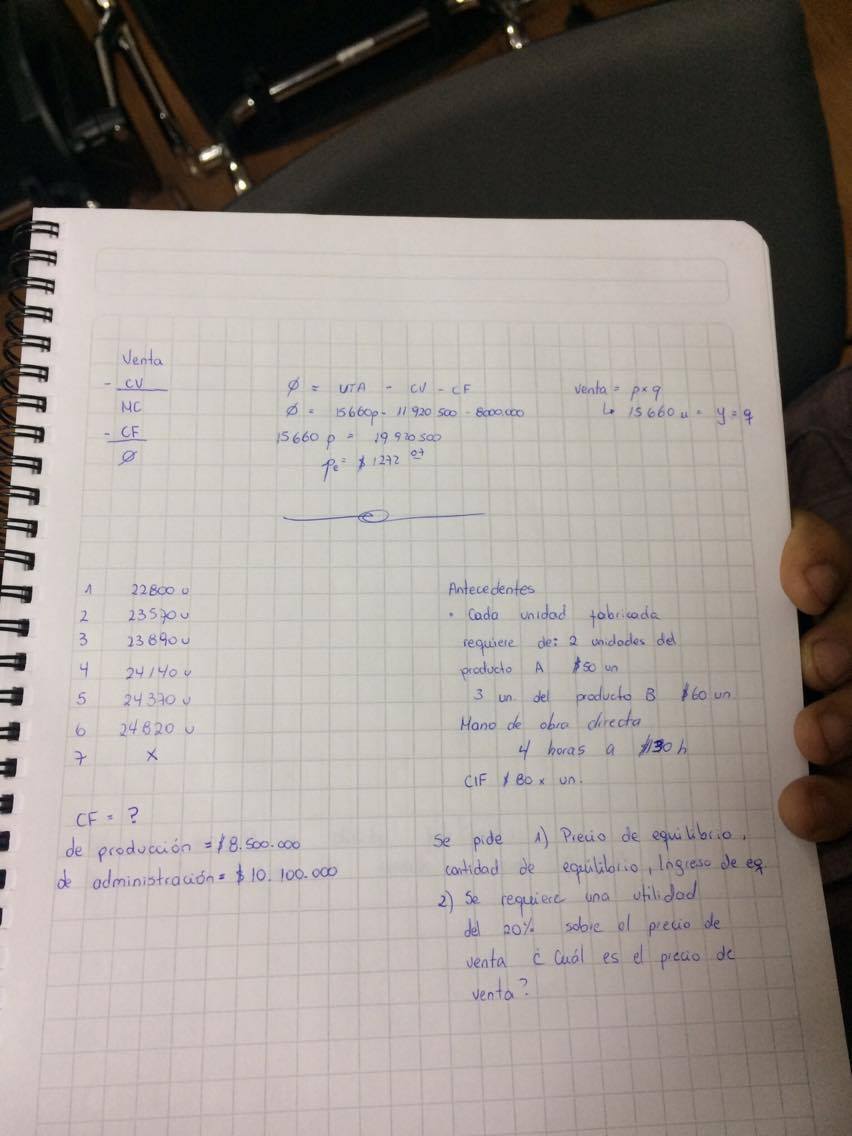 Venta
- CV
MC
- CF
∅
∅ = UTA - CV - CF
∅ = 15660p - 11 920 500 - 8000.000
15660 p = 19 920500
pe = $1272 07
venta = p x q
↳ 15 660 u = y = q
1 22800 u
2 23570 u
3 23890 u
4 24140 u
5 24370 u
6 24820 u
7 x
CF = ?
de producción = $8.500.000
de administración = $10.100.000
Antecedentes
· Cada unidad fabricada
requiere de: 2 unidades del
producto A $50 un
3 un. del producto B $60 un
Mano de obra directa
4 horas a $130 h
CIF $80 x un.
Se pide 1) Precio de equilibrio,
cantidad de equilibrio, Ingreso de eq.
2) Se requiere una utilidad
del 20% sobre el precio de
venta ¿ Cuál es el precio de
venta?